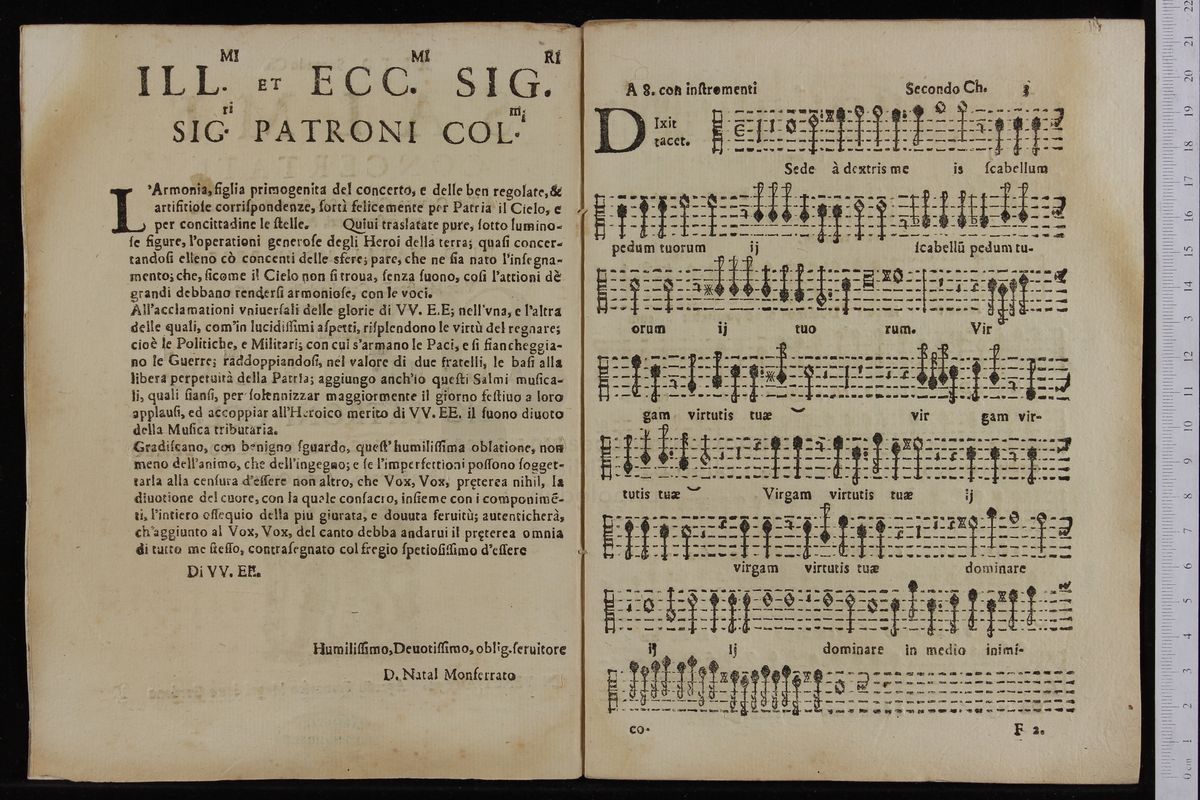 ILL.MI ET ECC.MI SIG.RI
SIG.ri PATRONI COL.mi
L'Armonia, figlia primogenita del concerto, e delle ben regolate, &
artifitiose corrispondenze, sortì felicemente per Patria il Cielo, e
per concittadine le stelle. Quiui traslatate pure, sotto lumino-
se figure, l'operationi generose degli Heroi della terra; quasi concer-
tandosi elleno cò concenti delle sfere; pare, che ne sia nato l'insegna-
mento; che, sicome il Cielo non si troua, senza suono, così l'attioni dè
grandi debbano rendersi armoniose, con le voci.
All'acclamationi vniuersali delle glorie di VV. E.E; nell'vna, e l'altra
delle quali, com'in lucidissimi aspetti, risplendono le virtù del regnare;
cioè le Politiche, e Militari; con cui s'armano le Paci, e si fiancheggia-
no le Guerre; raddoppiandosi, nel valore di due fratelli, le basi alla
libera perpetuità della Patria; aggiungo anch'io questi Salmi musica-
li, quali siansi, per solennizzar maggiormente il giorno festiuo a loro
applausi, ed accoppiar all'Heroico merito di VV. EE. il suono diuoto
della Musica tributaria.
Gradiscano, con benigno sguardo, quest'humilissima oblatione, non
meno dell'animo, che dell'ingegno; e se l'imperfettioni possono sogget-
tarla alla censura d'essere non altro, che Vox, Vox, pręterea nihil, la
diuotione del cuore, con la quale consacro, insieme con i componimē-
ti, l'intiero ossequio della più giurata, e douuta seruitù; autenticherà,
ch'aggiunto al Vox, Vox, del canto debba andarui il pręterea omnia
di tutto me stesso, contrasegnato col fregio spetiosissimo d'essere
Di VV. EE.
Humilissimo, Deuotissimo, oblig. seruitore
D. Natal Monferrato
A 8. con instromenti Secondo Ch. 3
DIxit
tacet.
Sede à dextris me is scabellum
pedum tuorum ij scabellū pedum tu-
orum ij tuo rum. Vir
gam virtutis tuæ vir gam vir-
tutis tuæ Virgam virtutis tuæ ij
virgam virtutis tuæ dominare
ij ij dominare in medio inimi-
co. F 2.